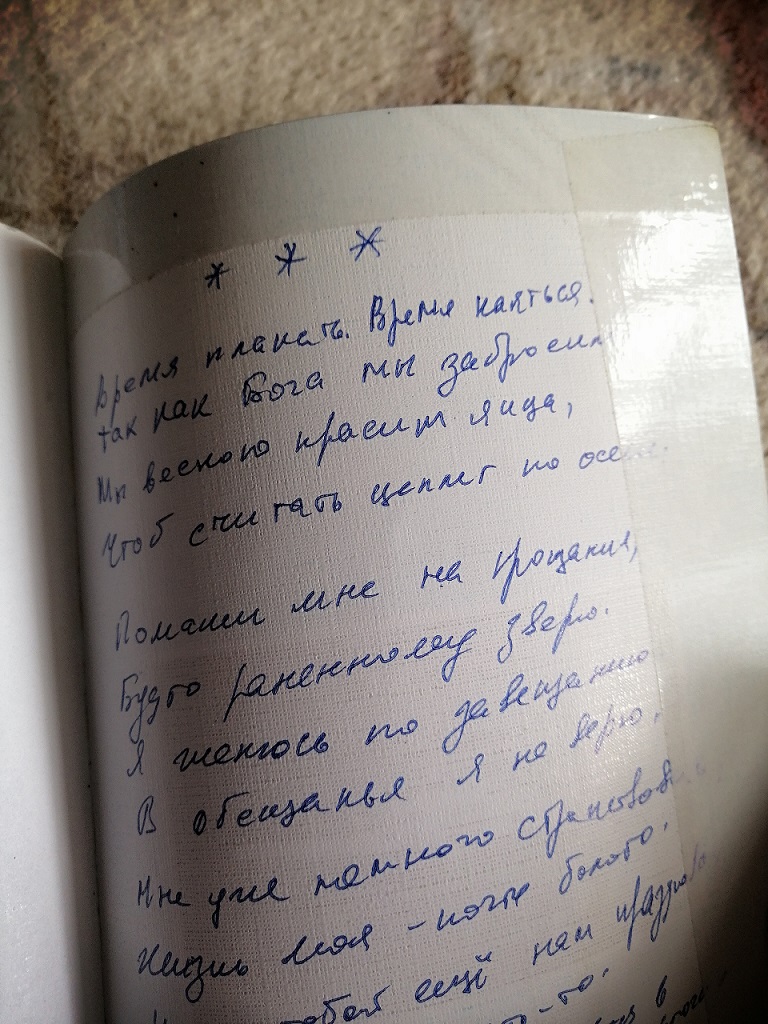 * * *
Время плакать. Время каяться.
Так как Бога мы забросили
Мы весною красим яйца,
Чтоб считать цыплят по осени.
Помаши мне на прощание,
Будто раненному зверю.
Я женюсь по завещанию
В обещанья я не верю.
Мне уже немного
Жизнь моя - почти болото.
тобой ещё нам
то-то.
в